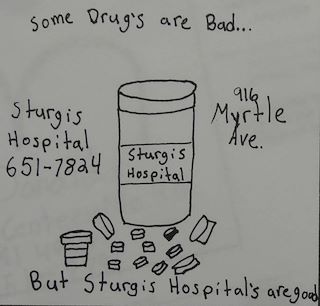 Some Drug's are Bad...
Sturgis
Hospital
651-7824
916
Myrtle
Ave.
Sturgis
Hospital
But Sturgis Hospital's are good